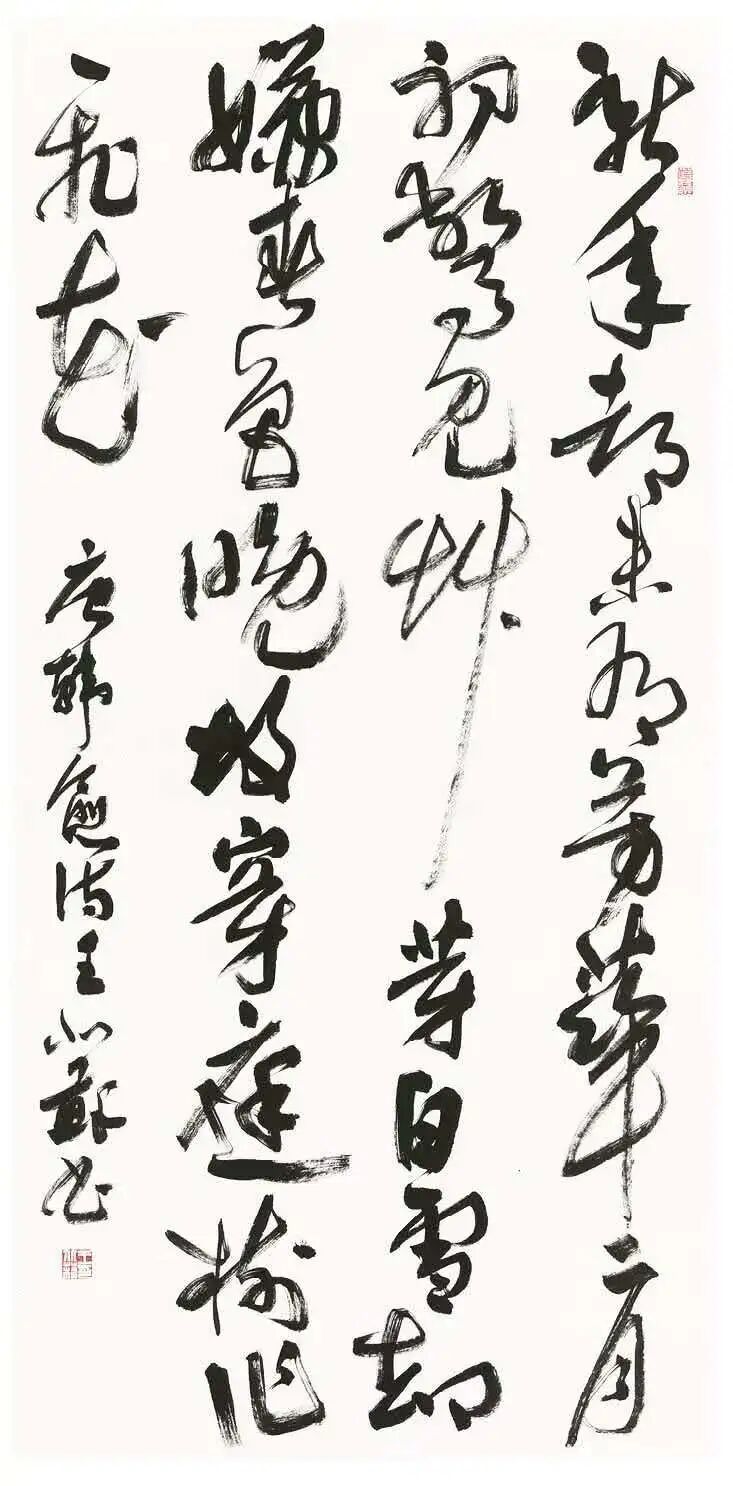 新年都未有芳華二月
初驚見艸芽白雪却
嫌春色晚故穿庭樹作
飛花
唐韓愈詩王書